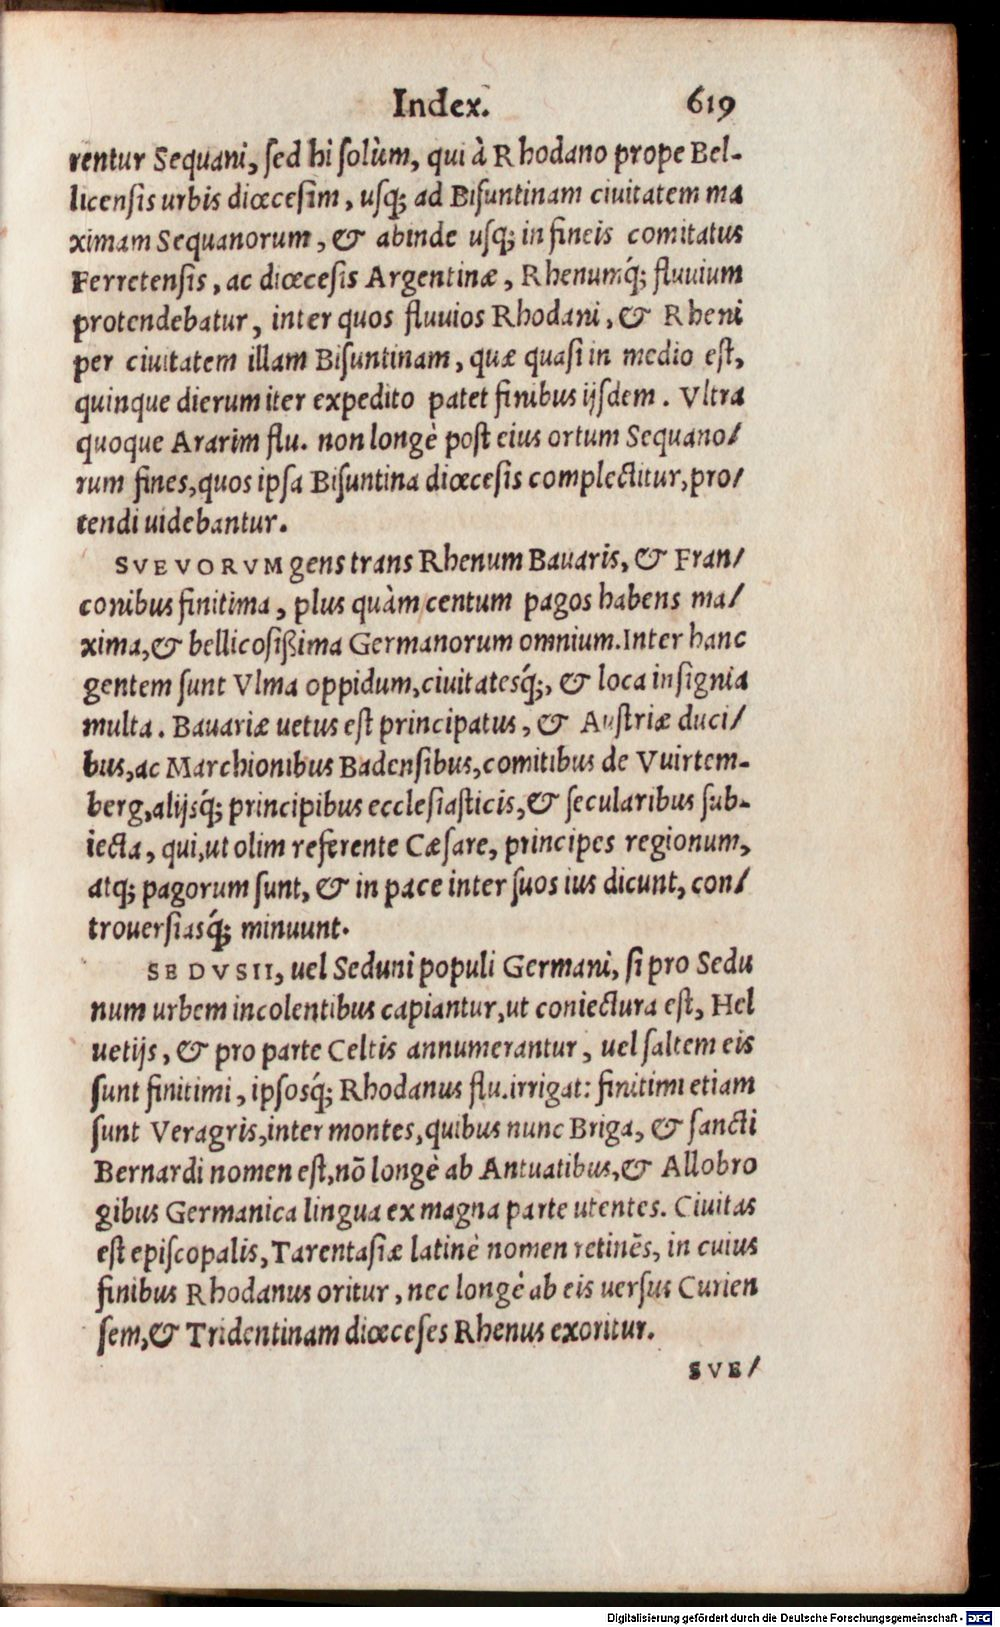 Index. 619
rentur Sequani, sed hi solùm, qui à Rhodano prope Bel-
licensis urbis diœcesim, usq; ad Bisuntinam ciuitatem ma
ximam Sequanorum, & abinde usq; in fineis comitatus
Ferretensis, ac diœcesis Argentinæ, Rhenumq́; fluuium
protendebatur, inter quos fluuios Rhodani, & Rheni
per ciuitatem illam Bisuntinam, quæ quasi in medio est,
quinque dierum iter expedito patet finibus ijsdem. Vltra
quoque Ararim flu. non longè post eius ortum Sequano/
rum fines, quos ipsa Bisuntina diœcesis complectitur, pro/
tendi uidebantur.
SVEVORVM gens trans Rhenum Bauaris, & Fran/
conibus finitima, plus quàm centum pagos habens ma/
xima, & bellicosißima Germanorum omnium. Inter hanc
gentem sunt Vlma oppidum, ciuitatesq́;, & loca insignia
multa. Bauariæ uetus est principatus, & Austriæ duci/
bus, ac Marchionibus Badensibus, comitibus de Vuirtem-
berg, alijsq́; principibus ecclesiasticis, & secularibus sub-
iecta, qui, ut olim referente Cæsare, principes regionum,
atq; pagorum sunt, & in pace inter suos ius dicunt, con/
trouersiasq́; minuunt.
SEDVSII, uel Seduni populi Germani, si pro Sedu
num urbem incolentibus capiantur, ut coniectura est, Hel
uetijs, & pro parte Celtis annumerantur, uel saltem eis
sunt finitimi, ipsosq́; Rhodanus flu. irrigat: finitimi etiam
sunt Veragris, inter montes, quibus nunc Briga, & sancti
Bernardi nomen est, nō longè ab Antuatibus, & Allobro
gibus Germanica lingua ex magna parte utentes. Ciuitas
est episcopalis, Tarentasiæ latinè nomen retinēs, in cuius
finibus Rhodanus oritur, nec longè ab eis uersus Curien
sem, & Tridentinam diœceses Rhenus exoritur.
SVE/
Digitalisierung gefördert durch die Deutsche Forschungsgemeinschaft - DFG